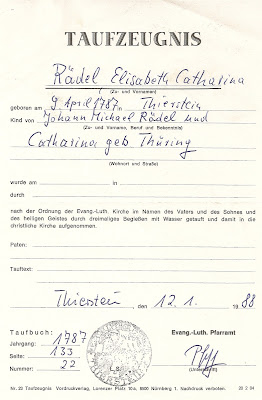 TAUFZEUGNIS
Rädel Elisabeth Catharina
(Zu- und Vornamen)
geboren am 9 April 1787 in Thierstein
Kind von Johann Michael Rädel und
(Zu- und Vorname, Beruf und Bekenntnis)
Catharina geb Thüring
(Wohnort und Straße)
wurde am in
durch
nach der Ordnung der Evang.-Luth. Kirche im Namen des Vaters und des Sohnes und
des heiligen Geistes durch dreimaliges Begießen mit Wasser getauft und damit in die
christliche Kirche aufgenommen.
Paten:
Tauftext:
Thierstein, den 12. 1. 1988
Taufbuch:
Jahrgang: 1787
Seite: 133
Nummer: 22
L.S.
Evang.-Luth. Pfarramt
(Unterschrift)
Nr. 23 Taufzeugnis Vordruckverlag, Lorenzer Platz 10a, 8500 Nürnberg 1. Nachdruck verboten.